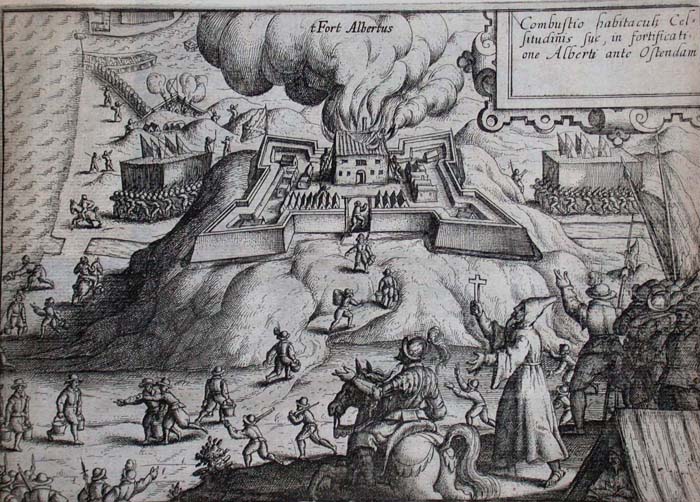 tFort Albertus
Combustio habitaculi Cel-
situdinis sue, in fortificati-
one Alberti ante Ostendam